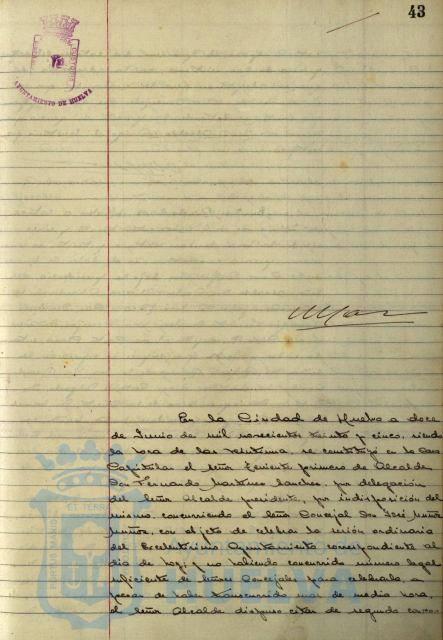 43
AYUNTAMIENTO DE HUELVA
En la Ciudad de Huelva a doce
de Junio de mil novecientos treinta y cinco, siendo
la hora de las veintiuna, se constituyó en la Casa
Capitular el señor Teniente primero de Alcalde
Don Fernando Martinez Sanchez, por delegación
del Señor Alcalde presidente, por indisposición del
mismo, concurriendo el señor Concejal Don José Muñoz
Muñoz, con objeto de celebrar la sesión ordinaria
del Excelentisimo Ayuntamiento correspondiente al
dia de hoy; y no habiendo concurrido número legal
suficiente de señores Concejales para celebrarla a
pesar de haber transcurrido mas de media hora,
el señor Alcalde dispuso citar de segunda convo